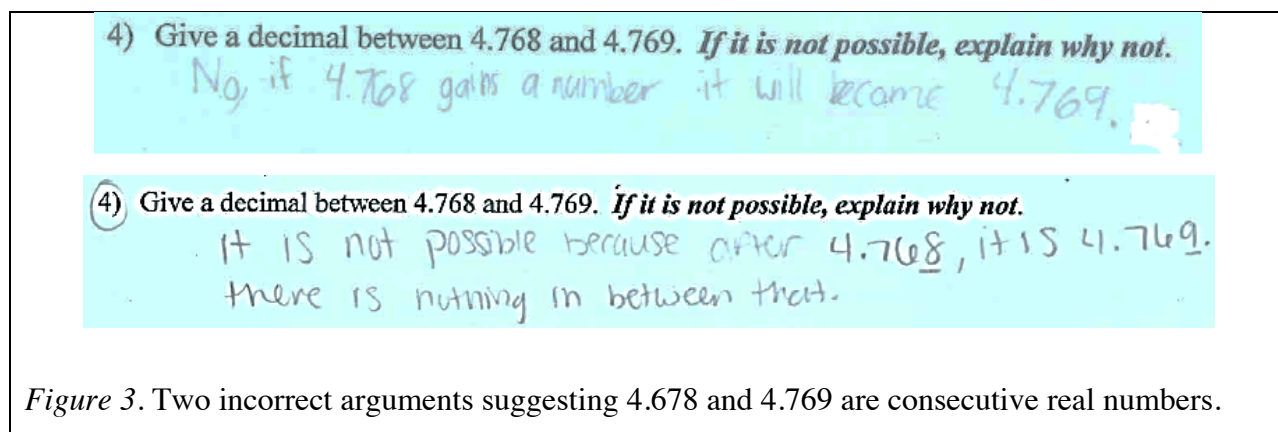 4) Give a decimal between 4.768 and 4.769. If it is not possible, explain why not.
No, if 4.768 gains a number it will become 4.769.
4) Give a decimal between 4.768 and 4.769. If it is not possible, explain why not.
It is not possible because after 4.768, it is 4.769.
there is nothing in between that.
Figure 3. Two incorrect arguments suggesting 4.678 and 4.769 are consecutive real numbers.